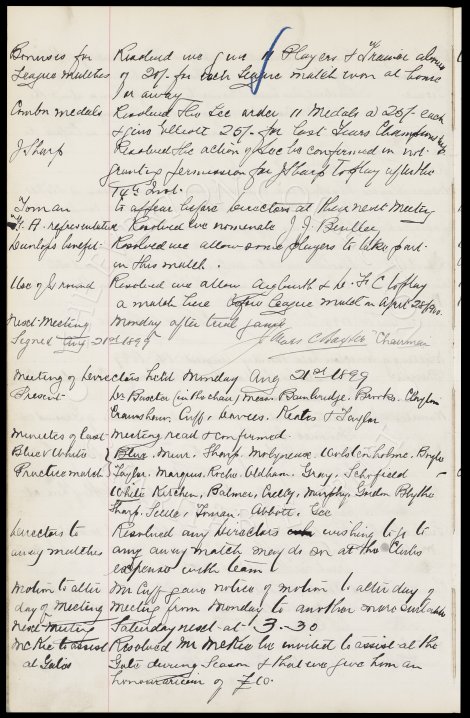 Bonuses for Resolved we give 11 Players & Trainer a bonus
League Matches of 20/- for each League match won at home
or away
Combn medals Resolved this Sec order 11 Medals @ 25/- each
& give Elliott 25/- for last Years Championship
J Sharp Resolved the action of Sec be confirmed in not
granting permission for J Sharp to play after the
14th Inst.
Toman to appear before Directors at their next Meeting
F. A. representative Resolved we nominate J. J. Bentley
Dunlops benefit Resolved we allow some players to take part
in this match.
Use of Ground Resolved we allow Aigburth & Dis. F C to play
a match here before League match on April 28/900.
Next Meeting Monday after trial game
Signed Aug 21st 1899 Chairman
Meeting of Directors held Monday Aug 21st 1899
Present Dr Baxter (in the chair) Messrs Bainbridge. Banks. Clayton
Crawshaw. Cuff. Davies. Keates & Taylor
Minutes of last Meeting read & confirmed
Blue v White Blue. Muir. Sharp. Molyneux. Wolstenholme. Boyle
Practice match Taylor. Marques. Roche. Oldham. Gray. Schofield
White Kitchen, Balmer, Crelly, Murphy, Gordon Blythe
Sharp. Settle. Toman. Abbott. Gee
Directors to Resolved any Directors wishing to go to
away matches any away match may do so at the Clubs
expense with team
Motion to alter Mr Cuff gave notice of motion to alter day of
day of Meeting Meeting from Monday to another more suitable
Next Meeting Saturday next at 3-30
McKie to assist Resolved Mr McKie be invited to assist at the
at Gates Gate during Season & that we give him an
honorarium of £10.